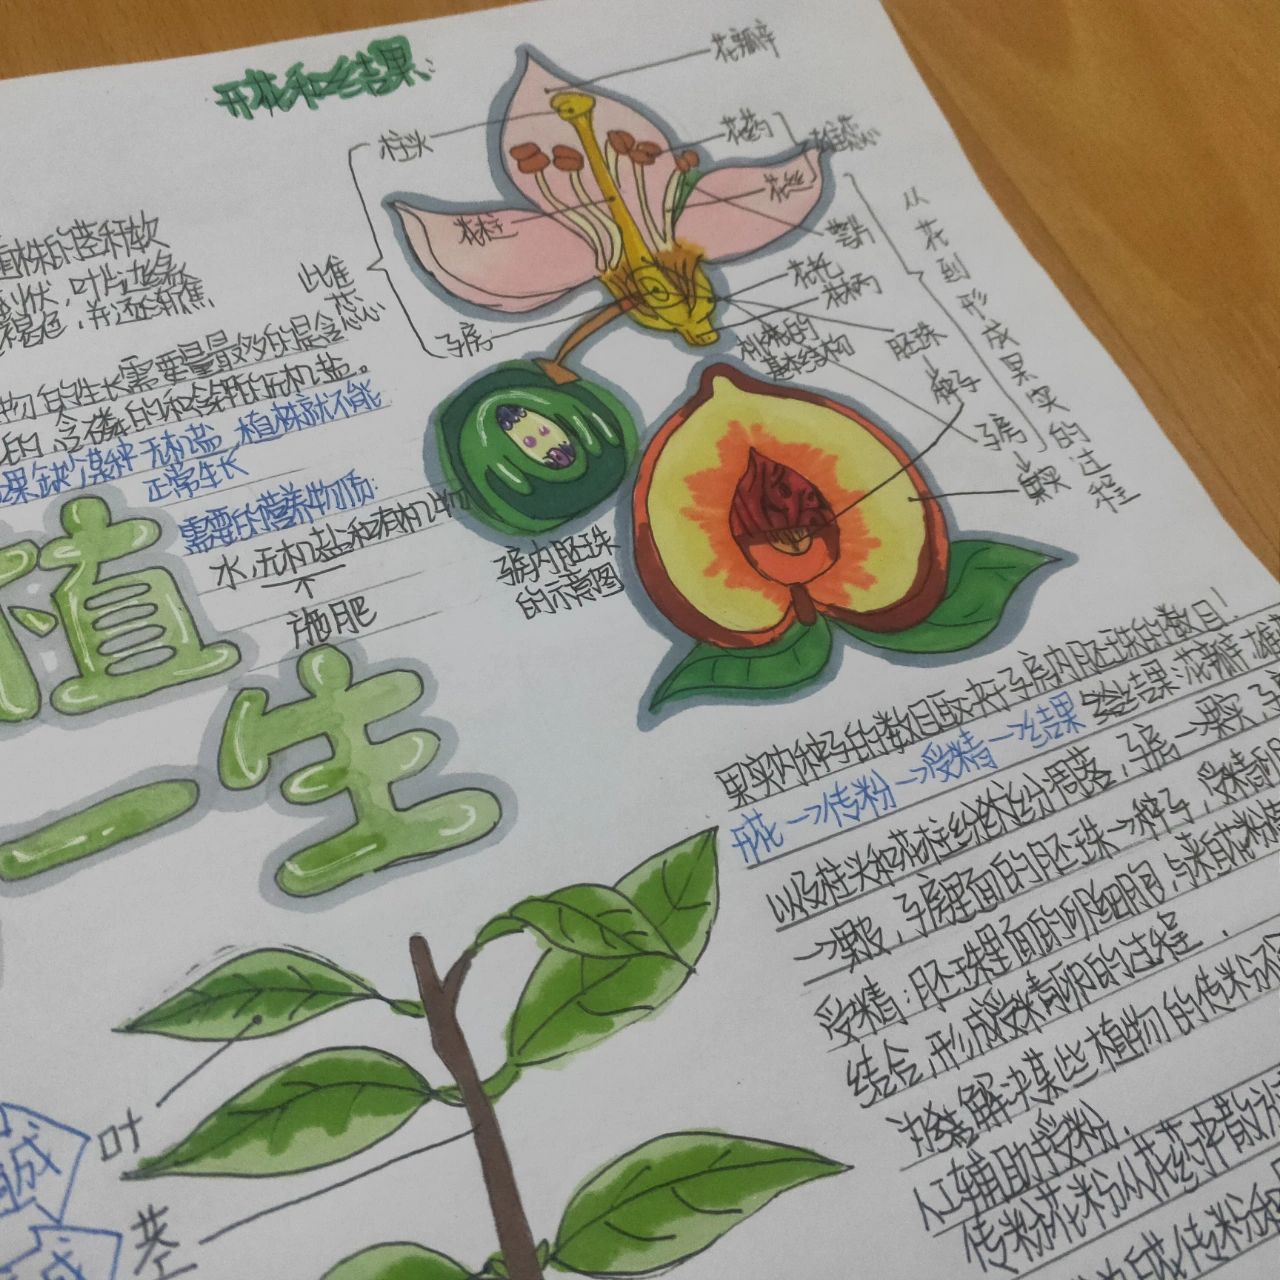 开花和结果:
花瓣
柱头
花药
雄蕊
花丝
花柱
雌蕊
萼片
花托
花柄
子房
从花到形成果实的过程
胚珠
种子
子房
果实
基本结构
植株的茎秆软
状，叶片边缘
褐色，并逐渐焦
物的生长需要量最多的是含
的、含磷的和含钾的无机盐。
果缺少某种无机盐，植株就不能
正常生长
需要的营养物质:
水，无机盐和有机物
施肥
子房内胚珠
的示意图
植
一生
果实内种子的数目取决于子房内胚珠的数目!
开花→传粉→受精→结果
结果:花瓣、雄
以及柱头和花柱纷纷凋落，子房→果实，子
→果皮，子房里面的胚珠→种子，受精卵
受精:胚珠里面的卵细胞，与来自花粉
结合，形成受精卵的过程
解决某些植物的传粉不
人工辅助授粉.
传粉:花粉从花药中散放
叶
茎